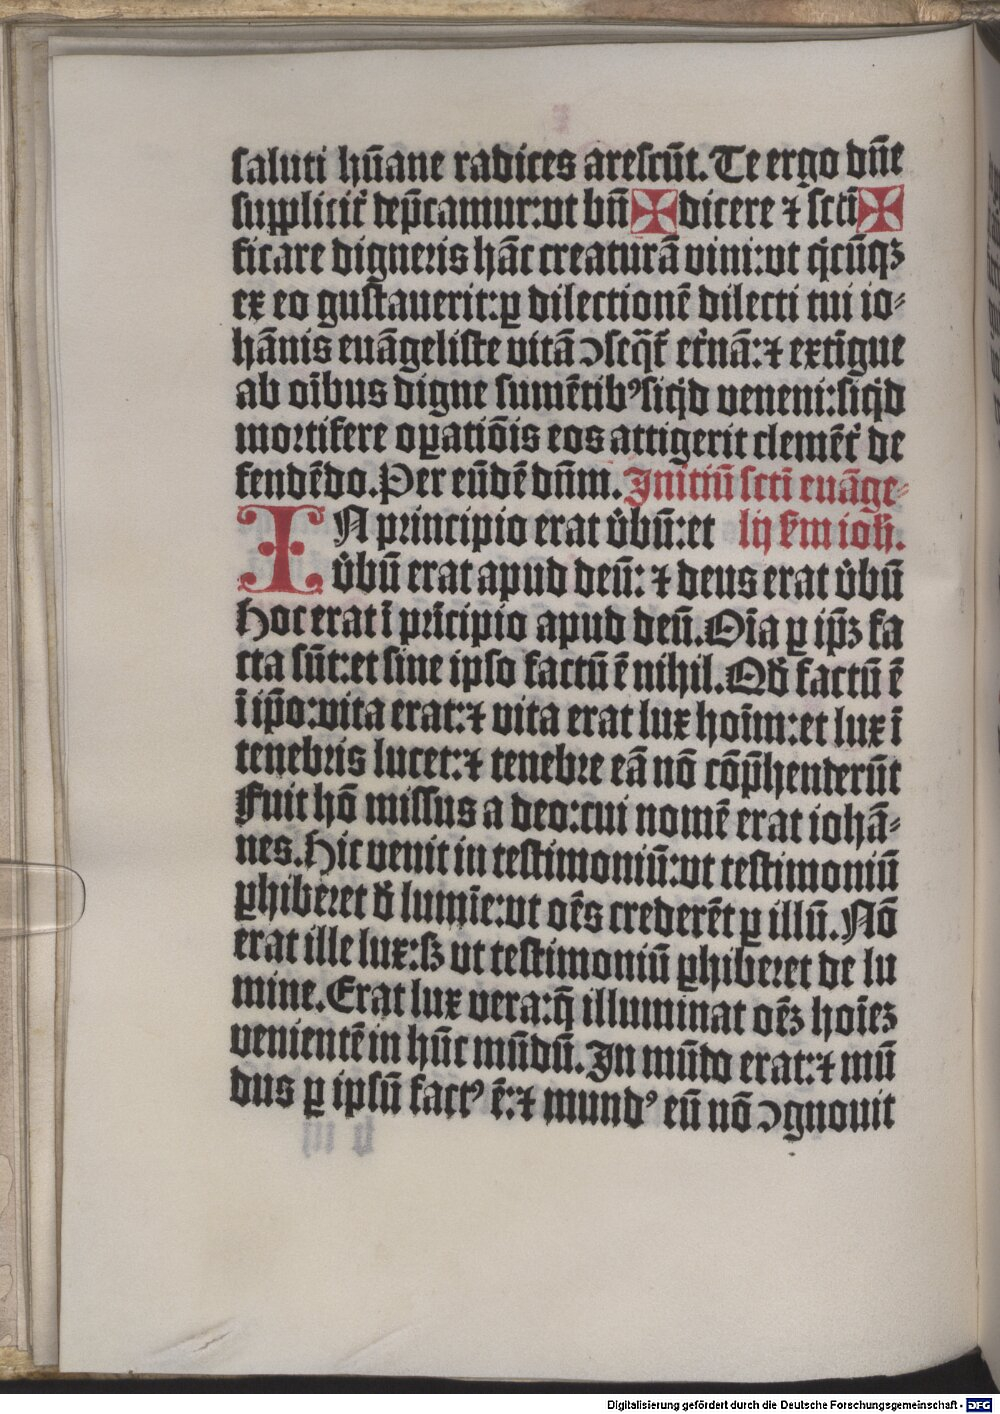 saluti hūane radices arescūt. Te ergo dn̄e
supplicit᷑ dep̄camur: ut bn̄ ✠ dicere ⁊ scti ✠
ficare digneris hāc creaturā vini: ut q̇cūqꝫ
ex eo gustauerit: ꝑ dilectionē dilecti tui io⸗
hānis euāgeliste vitā ↄseq̄t᷑ et᷑nā: ⁊ extīgue
ab oībus digne sumētibꝰ siq̇d veneni: siq̇d
mortifere oꝑatiōis eos attigerit clemēt᷑ de
fendēdo. Per eūdē dn̄m. Initiū scti euāge⸗
IN principio erat v̾bū: et lij s̄m ioh̄.
v̾bū erat apud deū: ⁊ deus erat v̾bū
Hoc erat ī prīcipio apud deū. Oīa ꝑ ip̄ꝫ fa
cta sūt: et sine ipso factū ē nihil. Qd̾ factū ē
ī ip̄o: vita erat: ⁊ vita erat lux hoīm: et lux ī
tenebris lucet: ⁊ tenebre eā nō cōp̄henderūt
Fuit hō missus a deo: cui nomē erat iohā⸗
nes. Hic venit in testimoniū: ut testimoniū
ꝑhiberet d̾ lumīe: ut oēs crederēt ꝑ illū. Nō
erat ille lux: sꝫ ut testimoniū ꝑhiberet de lu
mine. Erat lux vera: q̄ illuminat oēꝫ hoīeꝫ
venientē in hūc mūdū. In mūdo erat: ⁊ mū
dus ꝑ ipsū factꝰ ē: ⁊ mundꝰ eū nō ↄgnouit
Digitalisierung gefördert durch die Deutsche Forschungsgemeinschaft - DFG